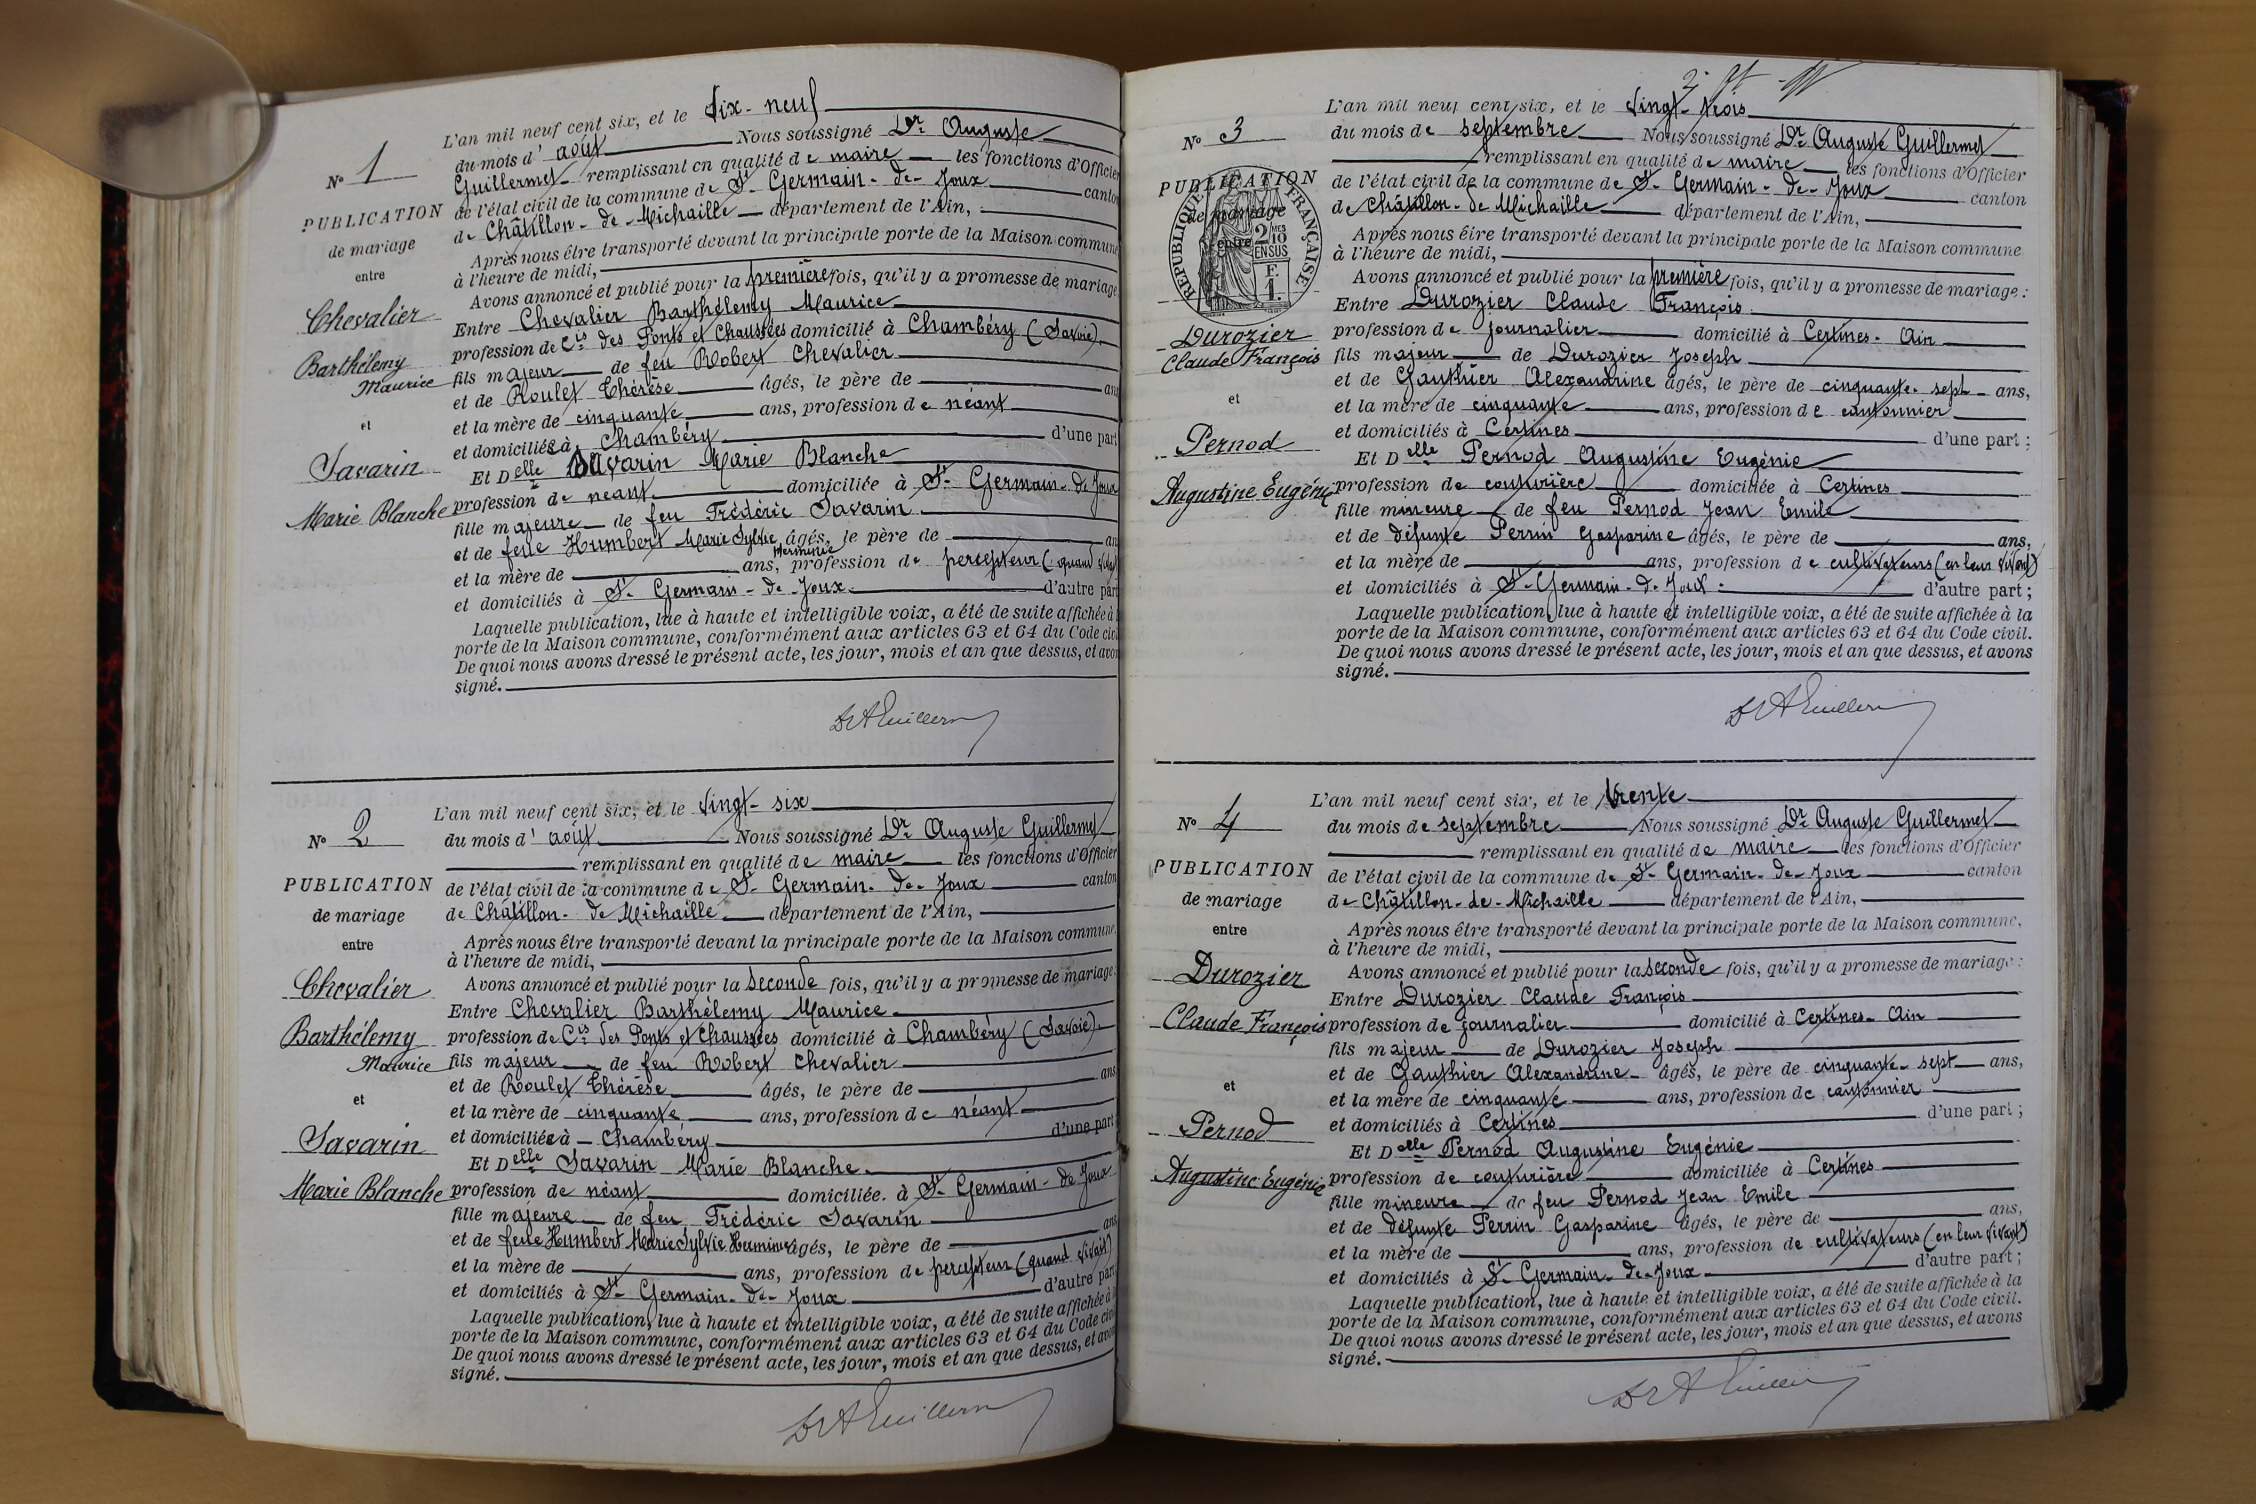 L'an mil neuf cent six, et le dix-neuf
du mois d'août Nous soussigné Dr Auguste
Guillermet remplissant en qualité de maire les fonctions d'Officier
de l'état civil de la commune de St-Germain-de-Joux canton
de Châtillon-de-Michaille département de l'Ain,
Après nous être transporté devant la principale porte de la Maison commune
à l'heure de midi,
Avons annoncé et publié pour la première fois, qu'il y a promesse de mariage
Entre Chevalier Barthélemy Maurice
profession de Cis des Ponts et Chaussées domicilié à Chambéry (Savoie).
fils majeur de feu Robert Chevalier
et de Roulet Thérèse âgés, le père de ans
et la mère de cinquante ans, profession de néant
et domiciliés à Chambéry d'une part
Et Delle Savarin Marie Blanche
profession de néant domiciliée à St-Germain-de-Joux
fille majeure de feu Frédéric Savarin
et de feue Humbert Marie Sylvie âgés, le père de an
Herminie
et la mère de ans, profession de percepteur (quand vivait)
et domiciliés à St-Germain-de-Joux. d'autre part
Laquelle publication, lue à haute et intelligible voix, a été de suite affichée à
porte de la Maison commune, conformément aux articles 63 et 64 du Code civil
De quoi nous avons dressé le présent acte, les jour, mois et an que dessus, et avons
signé.
Dr A Guillermet
No 1
PUBLICATION
de mariage
entre
Chevalier
Barthélemy
Maurice
et
Savarin
Marie Blanche
L'an mil neuf cent six, et le vingt-six
du mois d'août Nous soussigné Dr Auguste Guillermet
remplissant en qualité de maire les fonctions d'Officier
de l'état civil de la commune de St-Germain-de-Joux canton
de Châtillon-de-Michaille département de l'Ain,
Après nous être transporté devant la principale porte de la Maison commune,
à l'heure de midi,
Avons annoncé et publié pour la seconde fois, qu'il y a promesse de mariage:
Entre Chevalier Barthélemy Maurice
profession de Cis des Ponts et Chaussées domicilié à Chambéry (Savoie).
fils majeur de feu Robert Chevalier
et de Roulet Thérèse âgés, le père de ans
et la mère de cinquante ans, profession de néant
et domiciliés à Chambéry d'une part
Et Delle Savarin Marie Blanche.
profession de néant domiciliée. à St-Germain-de-Joux
fille majeure de feu Frédéric Savarin
et de feue Humbert Marie Sylvie Herminie âgés, le père de ans
et la mère de ans, profession de percepteur (quand vivait)
et domiciliés à St-Germain-de-Joux d'autre part
Laquelle publication, lue à haute et intelligible voix, a été de suite affichée à
porte de la Maison commune, conformément aux articles 63 et 64 du Code civil
De quoi nous avons dressé le présent acte, les jour, mois et an que dessus, et avons
signé.
Dr A Guillermet
No 2
PUBLICATION
de mariage
entre
Chevalier
Barthélemy
Maurice
et
Savarin
Marie Blanche
L'an mil neuf cent six, et le vingt-trois
du mois de septembre Nous soussigné Dr Auguste Guillermet
remplissant en qualité de maire les fonctions d'Officier
de l'état civil de la commune de St-Germain-de-Joux canton
de Châtillon-de Michaille département de l'Ain,
Après nous être transporté devant la principale porte de la Maison commune
à l'heure de midi,
Avons annoncé et publié pour la première fois, qu'il y a promesse de mariage:
Entre Durozier Claude François
profession de journalier domicilié à Certines-Ain
fils majeur de Durozier Joseph
et de Gauthier Alexandrine âgés, le père de cinquante-sept ans,
et la mère de cinquante ans, profession de cantonnier
et domiciliés à Certines d'une part;
Et Delle Pernod Augustine Eugénie
profession de couturière domiciliée à Certines
fille mineure de feu Pernod Jean Emile
et de défunte Perrin Gasparine âgés, le père de ans,
et la mère de ans, profession de cultivateurs (en leur vivant)
et domiciliés à St-Germain-de-Joux. d'autre part;
Laquelle publication, lue à haute et intelligible voix, a été de suite affichée à la
porte de la Maison commune, conformément aux articles 63 et 64 du Code civil.
De quoi nous avons dressé le présent acte, les jour, mois et an que dessus, et avons
signé.
Dr A Guillermet
No 3
PUBLICATION
de mariage
entre
RÉPUBLIQUE FRANÇAISE
2/10 MES
EN SUS
F.
1.
Durozier
Claude François
et
Pernod
Augustine Eugénie
L'an mil neuf cent six, et le trente
du mois de septembre Nous soussigné Dr Auguste Guillermet
remplissant en qualité de maire les fonctions d'Officier
de l'état civil de la commune de St-Germain-de-Joux canton
de Châtillon-de-Michaille département de l'Ain,
Après nous être transporté devant la principale porte de la Maison commune,
à l'heure de midi,
Avons annoncé et publié pour la seconde fois, qu'il y a promesse de mariage:
Entre Durozier Claude François
profession de journalier domicilié à Certines-Ain
fils majeur de Durozier Joseph
et de Gauthier Alexandrine âgés, le père de cinquante-sept ans,
et la mère de cinquante ans, profession de cantonnier
et domiciliés à Certines d'une part;
Et Delle Pernod Augustine Eugénie
profession de couturière domiciliée à Certines
fille mineure de feu Pernod Jean Emile
et de défunte Perrin Gasparine âgés, le père de ans,
et la mère de ans, profession de cultivateurs (en leur vivant)
et domiciliés à St-Germain-de-Joux d'autre part;
Laquelle publication, lue à haute et intelligible voix, a été de suite affichée à la
porte de la Maison commune, conformément aux articles 63 et 64 du Code civil.
De quoi nous avons dressé le présent acte, les jour, mois et an que dessus, et avons
signé.
Dr A Guillermet
No 4
PUBLICATION
de mariage
entre
Durozier
Claude François
et
Pernod
Augustine Eugénie